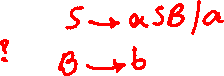 S → aSB/a
? B → b